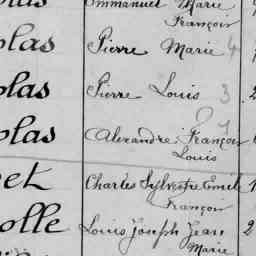 olas Emmanuel Marie
François
olas Pierre Marie 4
olas Pierre Louis 3
olas Alexandre François
Louis
et Charles Sylvestre Emile 1
François
olle Louis Joseph Jean 2
Marie